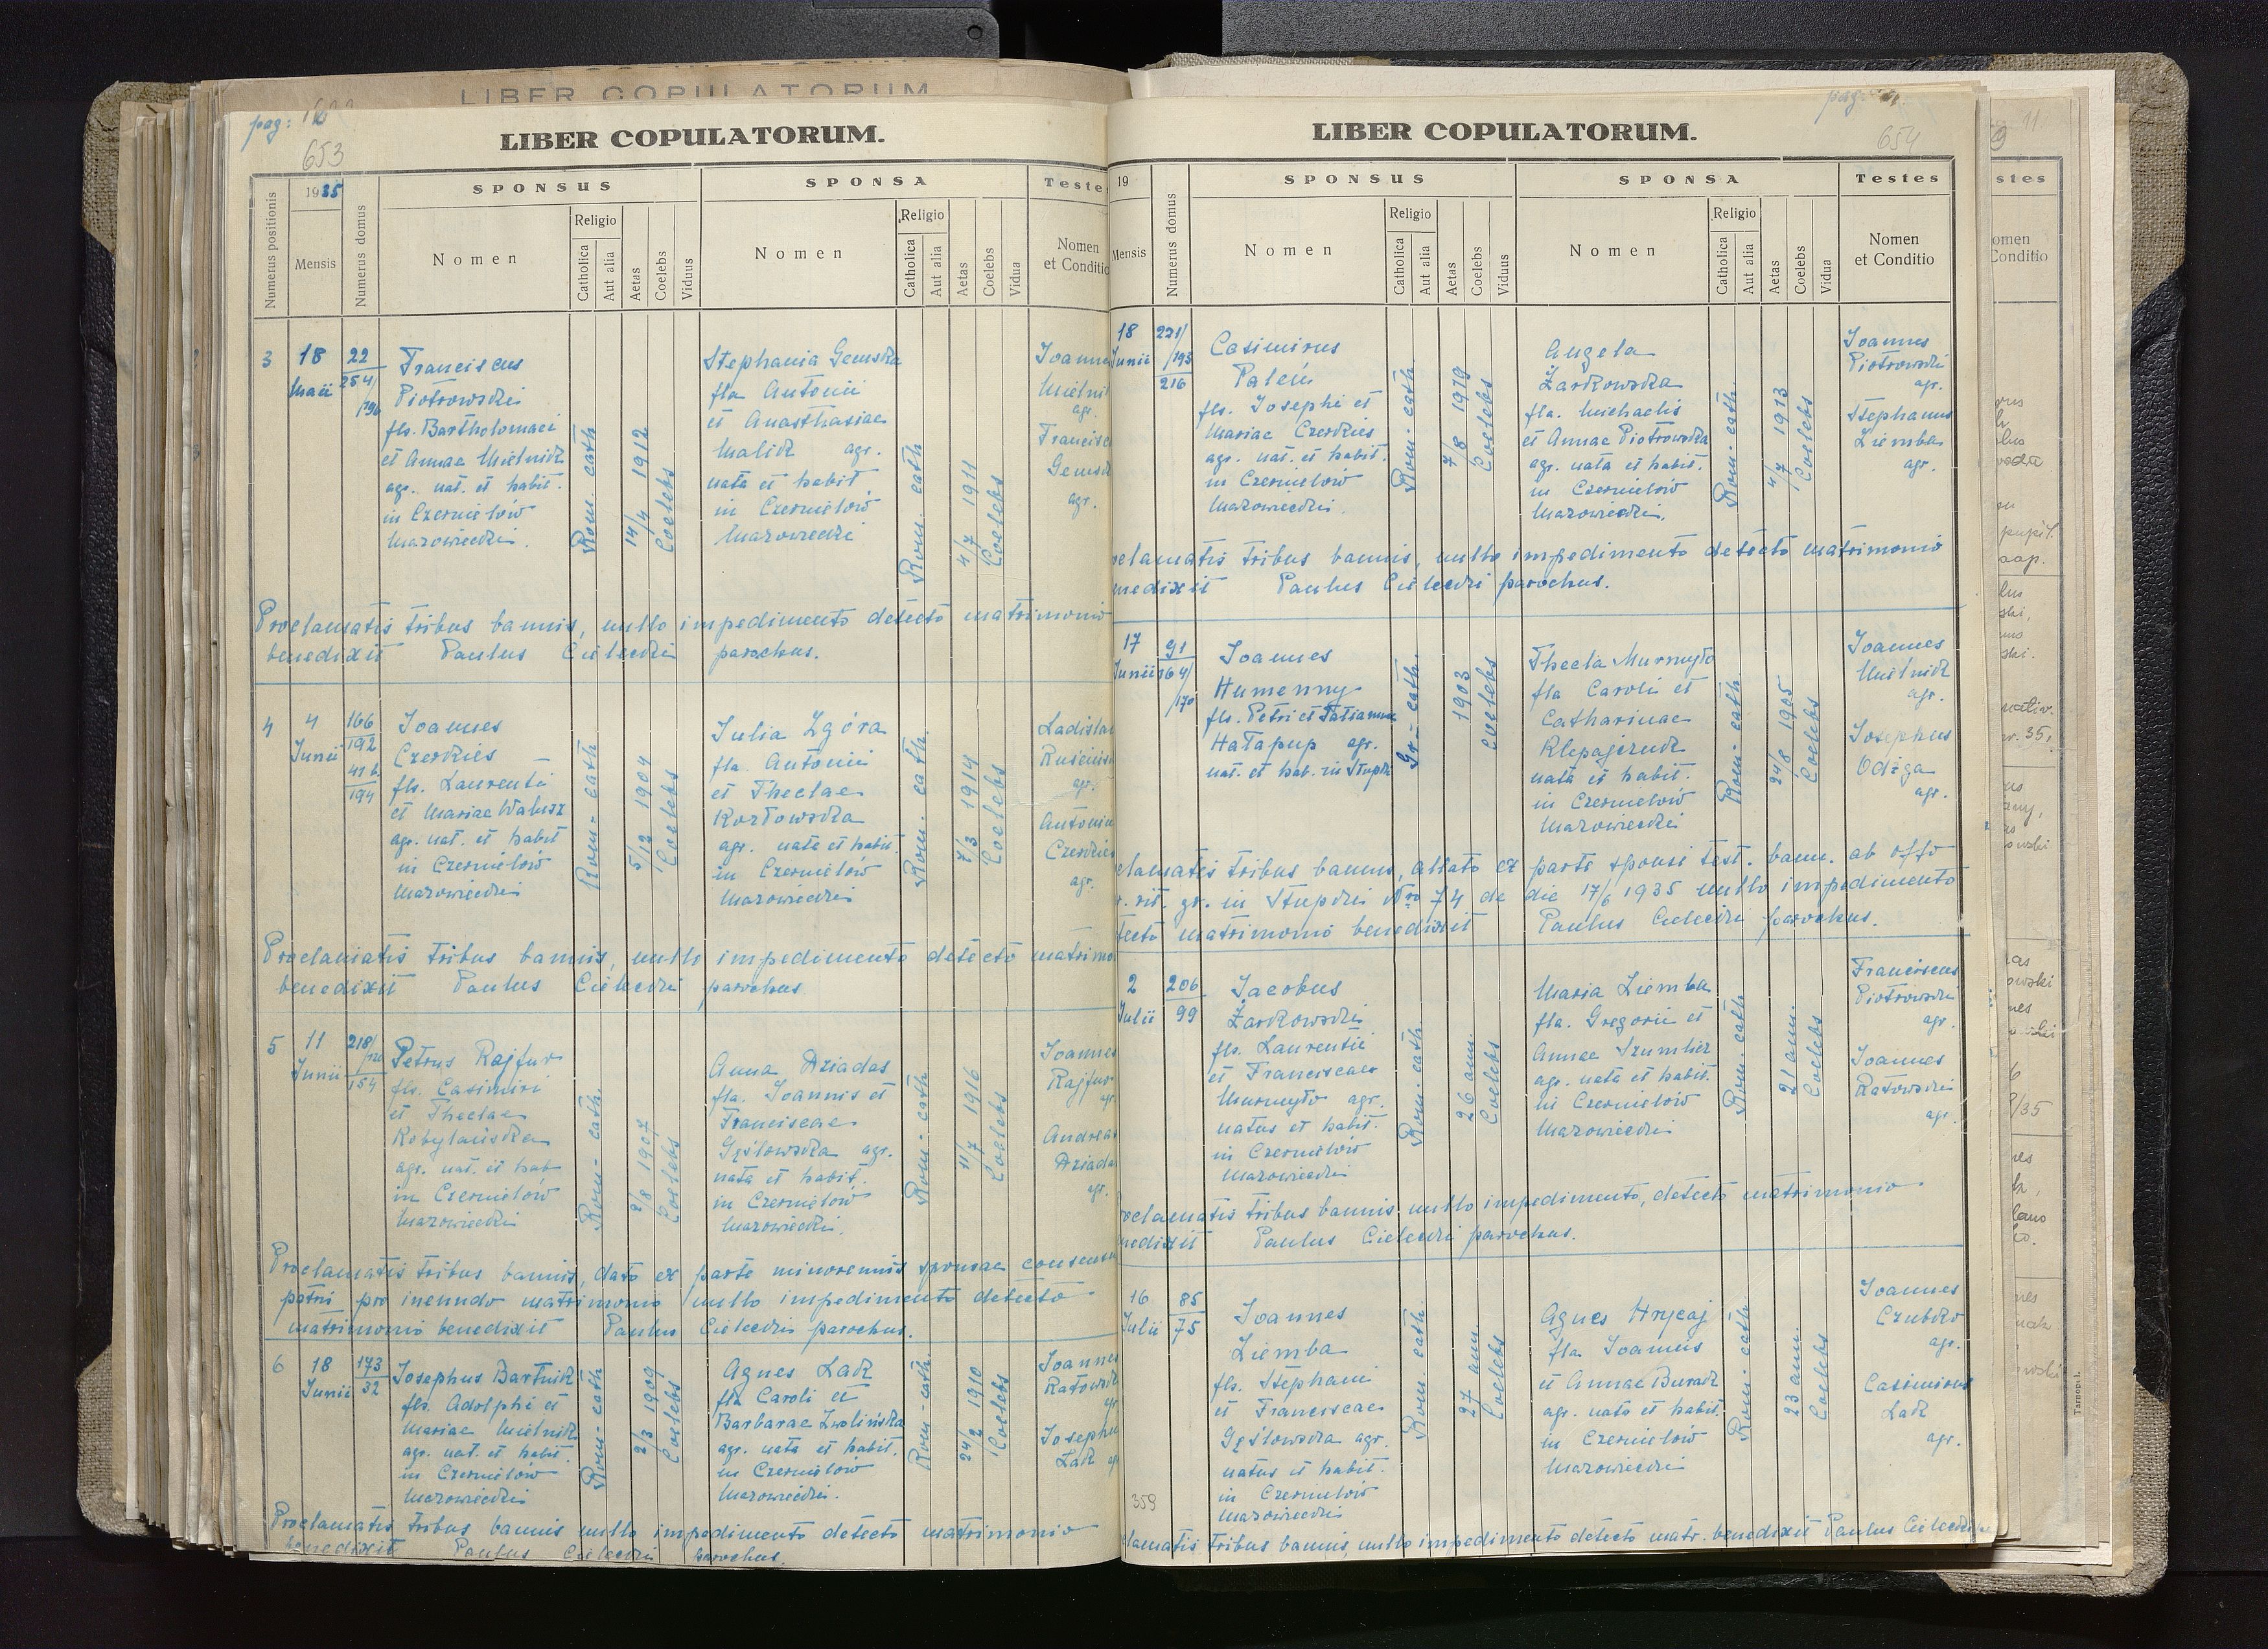 LIBER COPULATORUM
pag:
653
LIBER COPULATORUM.
Numerus positionis
1935
Mensis
Numerus domus
SPONSUS
Nomen
Religio
Catholica
Aut alia
Aetas
Coelebs
Viduus
SPONSA
Nomen
Religio
Catholica
Aut alia
Aetas
Coelebs
Vidua
Testes
Nomen
et Conditio
3
18
Maii
22
254/
196
Franciscus
Piotrowski
fls. Bartholomaei
et Annae Mielnik
agr. nat. et habit.
in Czernielów
Mazowiecki.
Rom. cath
14/4 1912
Coelebs
Stephania Gemska
fla Antonii
et Anasthasiae
Malik agr.
nata et habit.
in Czernielów
Mazowiecki
Rom. cath
4/7 1911
Coelebs
Joanne
Mielni
agr.
Francisc
Gemsk
agr.
Proclamatis tribus bannis, nullo impedimento detecto matrimonio
benedixit Paulus Cielecki parochus.
4
4
Junii
166
192
41 b.
194
Joannes
Czerkies
fls. Laurentii
et Mariae Walusz
agr. nat. et habit
in Czernielów
Mazowiecki
Rom- cath
5/12 1904
Coelebs
Julia Zgóra
fla. Antonii
et Theclae
Kozłowska
agr. nata et habit.
in Czernielów
Mazowiecki
Rom. cath.
7/3 1914
Coelebs
Ladisla
agr.
Antoniu
Czerkies
agr.
Proclamatis tribus bannis, nullo impedimento detecto matrimo
benedixit Paulus Cielecki parochus
5
11
Junii
218/
154
Petrus Rajfur
fls. Casimiri
et Theclae
Kobylańska
agr. nat. et hab
in Czernielów
Mazowiecki
Rom- cath.
2/8 1907
Coelebs
Anna Dziadas
fla. Joannis et
Franciscae
Gęśłowska agr.
nata et habit.
in Czernielów
Mazowiecki.
Rom- cath
11/7 1916
Coelebs
Joannes
Rajfur
agr.
Andreas
Dziada
agr.
Proclamatis tribus bannis, dato ex parte minorennis sponsae consensu
patri pro ineundo matrimonio nullo impedimento detecto
matrimonio benedixit Paulus Cielecki parochus.
6
18
Junii
173
32
Josephus Bartnik
fls. Adolphi et
Mariae Mielnik
agr. nat. et habit.
in Czernielów
Mazowiecki
Rom- cath
2/3 1909
Coelebs
Agnes Łak
fla Caroli et
Barbarae Zwolińska
agr. nata et habit.
in Czernielów
Mazowiecki.
Rom- cath.
24/2 1910
Coelebs
Joannes
Ratowsk
agr.
Josephu
Łak agr
Proclamatis tribus bannis nullo impedimento detecto matrimonio
benedixit Paulus Cielecki parochus.
pag.
654
LIBER COPULATORUM.
19
Mensis
Numerus domus
SPONSUS
Nomen
Religio
Catholica
Aut alia
Aetas
Coelebs
Viduus
SPONSA
Nomen
Religio
Catholica
Aut alia
Aetas
Coelebs
Vidua
Testes
Nomen
et Conditio
18
Junii
221/
193
216
Casimirus
Paleń
fls. Josephi et
Mariae Czerkies
agr. nat. et habit.
in Czernielów
Mazowiecki.
Rom- cath
Coelebs
Angela
Żarkowska
fla. Michaelis
et Annae Piotrowska
agr. nata et habit.
in Czernielów
Mazowiecki.
Rom- cath.
4/7 1913
Coelebs
Joannes
Piotrowski
agr.
Stephanus
Ziemba
agr.
oclamatis tribus bannis, nullo impedimento detecto matrimonio
nedixit Paulus Cielecki parochus.
17
Junii
91
164/
170
Joannes
Humenny
fls. Petri et Tatianna
Hałapup agr.
nat. et hab. in Stupki
Gr- cath.
1903
coelebs
Thecla Murmyło
fla Caroli et
Catharinae
Klepajczuk
nata et habit.
in Czernielów
Mazowiecki
Rom- cath
24/8 1905
Coelebs
Joannes
Mielnik
agr.
Josephus
Odżga
agr.
clamatis tribus bannis, allato ex parte sponsi test. bann. ab offo
r. rit. gr. in Stupki Nro 74 de die 17/6 1935 nullo impedimento
tecto matrimonio benedixit Paulus Cielecki parochus.
2
Julii
206
99
Jacobus
Żarkowski
fls. Laurentii
et Franciscae
Murmyło agr.
natus et habit.
in Czernielów
Mazowiecki
Rom- cath.
26 ann.
Coelebs
Maria Ziemba
fla. Gregorii et
Annae Szumlicz
agr. nata et habit.
in Czernielów
Mazowiecki
Rom. cath
21 ann.
Coelebs
Franciscus
Piotrowski
agr.
Joannes
Ratowski
agr.
oclamatis tribus bannis nullo impedimento, detecto matrimonio
nedixit Paulus Cielecki parochus.
16
Julii
85
75
Joannes
Ziemba
fls. Stephani
et Franciscae
Gęśłowska agr.
natus et habit.
in Czernielów
Mazowiecki
Rom. cath.
27 ann.
Coelebs
Agnes Hrycaj
fla Joannis
et Annae Burak
agr. nata et habit.
in Czernielów
Mazowiecki
Rom- cath
23 ann.
Coelebs
Joannes
Czubko
agr.
Casimirus
Łak
agr.
359
clamatis tribus bannis, nullo impedimento detecto matr. benedixit Paulus Cielecki
stes
omen
Conditio
Tarnopol.